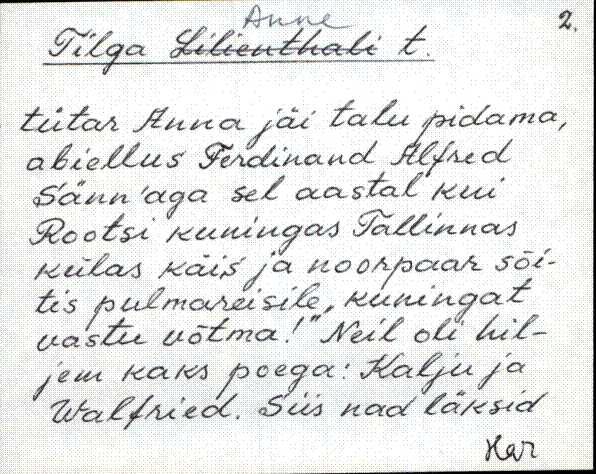 Anne
2.
Tilga Lilienthali t.
tütar Anna jäi talu pidama,
abiellus Ferdinand Alfred
Sänn'aga sel aastal kui
Rootsi kuningas Tallinnas
külas käis ja noorpaar sõi-
tis pulmareisile „kuningat
vastu võtma!" Neil oli hil-
jem kaks poega: Kalju ja
Walfried. Siis nad läksid
Har